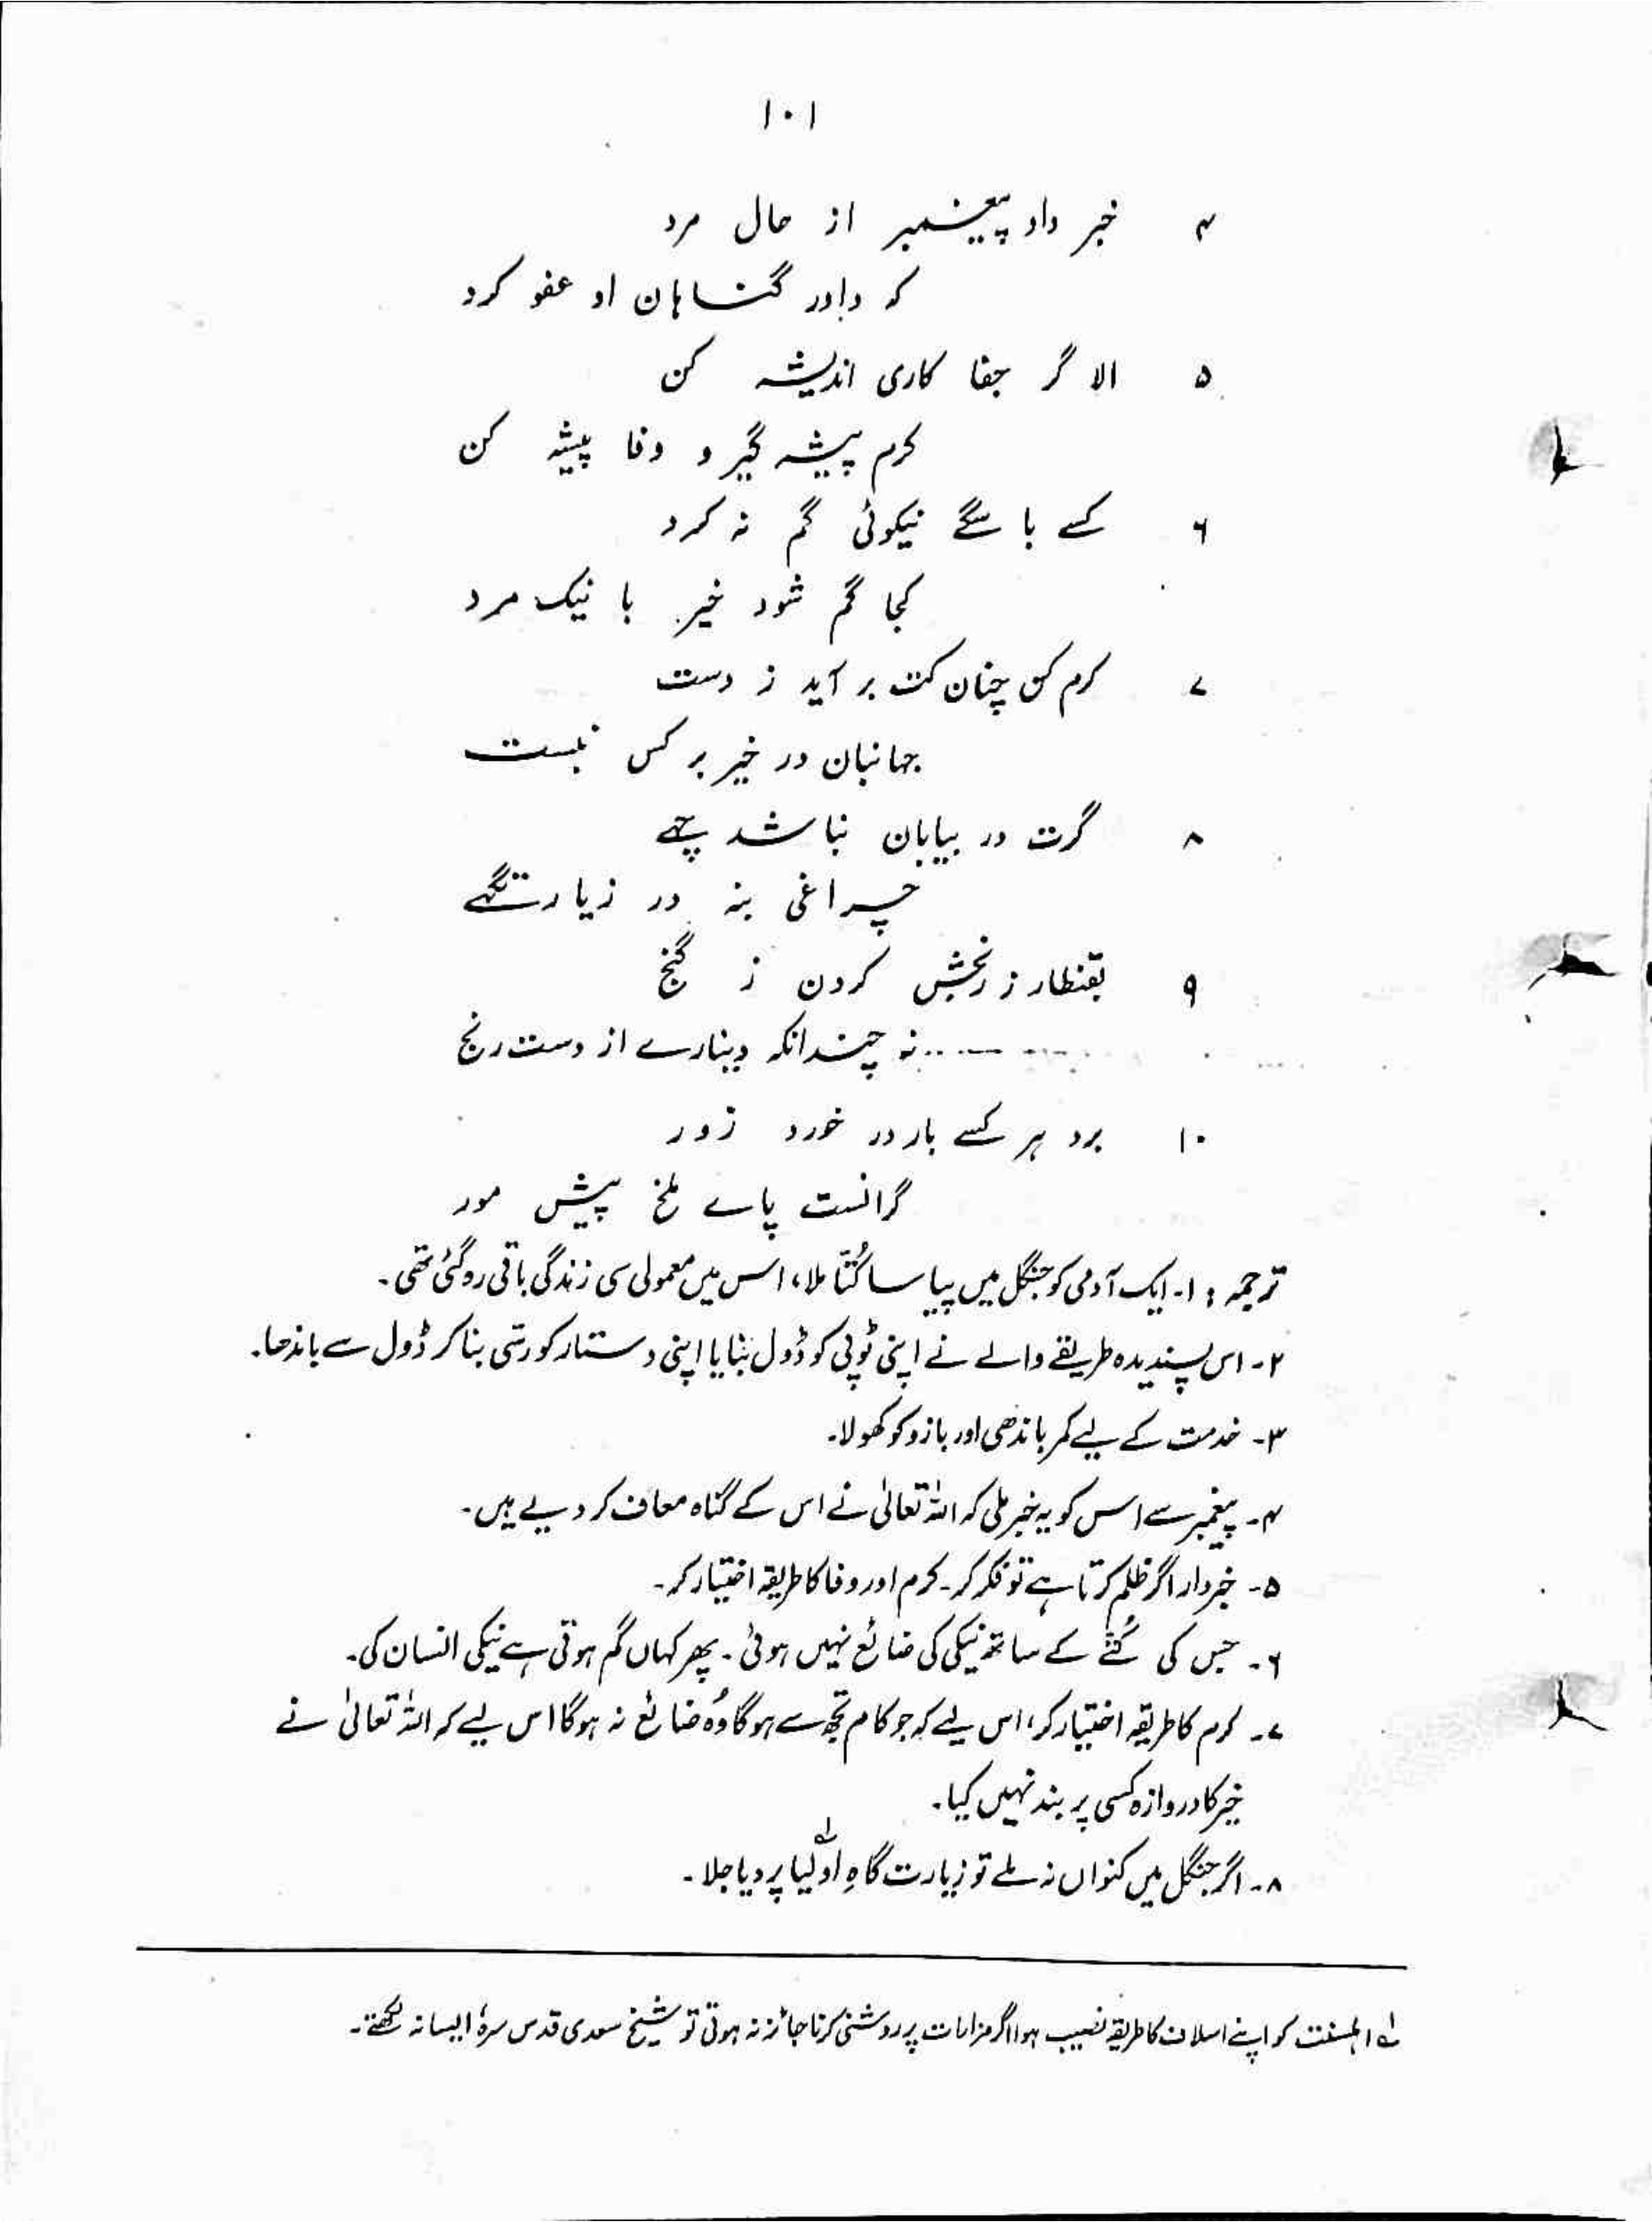 ۱۰۱
۴ خبر داد پیغمبر از حال مرد
که داور گناہان او عفو کرد
۵ الا گر جفا کاری اندیشہ کن
کرم پیشہ گیر و وفا پیشہ کن
۶ کسے با سگے نیکوئی گم نہ کرد
کجا گم شود خیر با نیک مرد
۷ کرم کن چنان کت بر آید ز دست
جہانبان در خیر بر کس نبست
۸ گرت در بیابان نباشد چہے
چراغی بنہ در زیارتگہے
۹ بقنطار زر بخش کردن ز گنج
نہ چندانکہ دینارے از دست رنج
۱۰ برد ہر کسے بار در خورد زور
گرانست پاے ملخ پیش مور
ترجمہ : ۱۔ ایک آدمی کو جنگل میں پیاسا کُتّا ملا، اس میں معمولی سی زندگی باقی رہ گئی تھی۔
۲۔ اس پسندیدہ طریقے والے نے اپنی ٹوپی کو ڈول بنایا اپنی دستار کو رسّی بنا کر ڈول سے باندھا۔
۳۔ خدمت کے لیے کمر باندھی اور بازو کو کھولا۔
۴۔ پیغمبر سے اس کو یہ خبر ملی کہ اللہ تعالیٰ نے اس کے گناہ معاف کر دیے ہیں۔
۵۔ خبردار اگر ظلم کرتا ہے تو فکر کر۔ کرم اور وفا کا طریقہ اختیار کر۔
۶۔ جس کی کُتّے کے ساتھ نیکی کی ضائع نہیں ہوئی۔ پھر کہاں گم ہوتی ہے نیکی انسان کی۔
۷۔ کرم کا طریقہ اختیار کر، اس لیے کہ جو کام تجھ سے ہوگا وُہ ضائع نہ ہوگا اس لیے کہ اللہ تعالیٰ نے
خیر کا دروازہ کسی پر بند نہیں کیا۔
۸۔ اگر جنگل میں کنواں نہ ملے تو زیارت گاہِ اولیا پر دیا جلا۔
لہ اہلسنت کو اپنے اسلاف کا طریقہ نصیب ہوا اگر مزارات پر روشنی کرنا جائز نہ ہوتی تو شیخ سعدی قدس سرہٗ ایسا نہ لکھتے۔